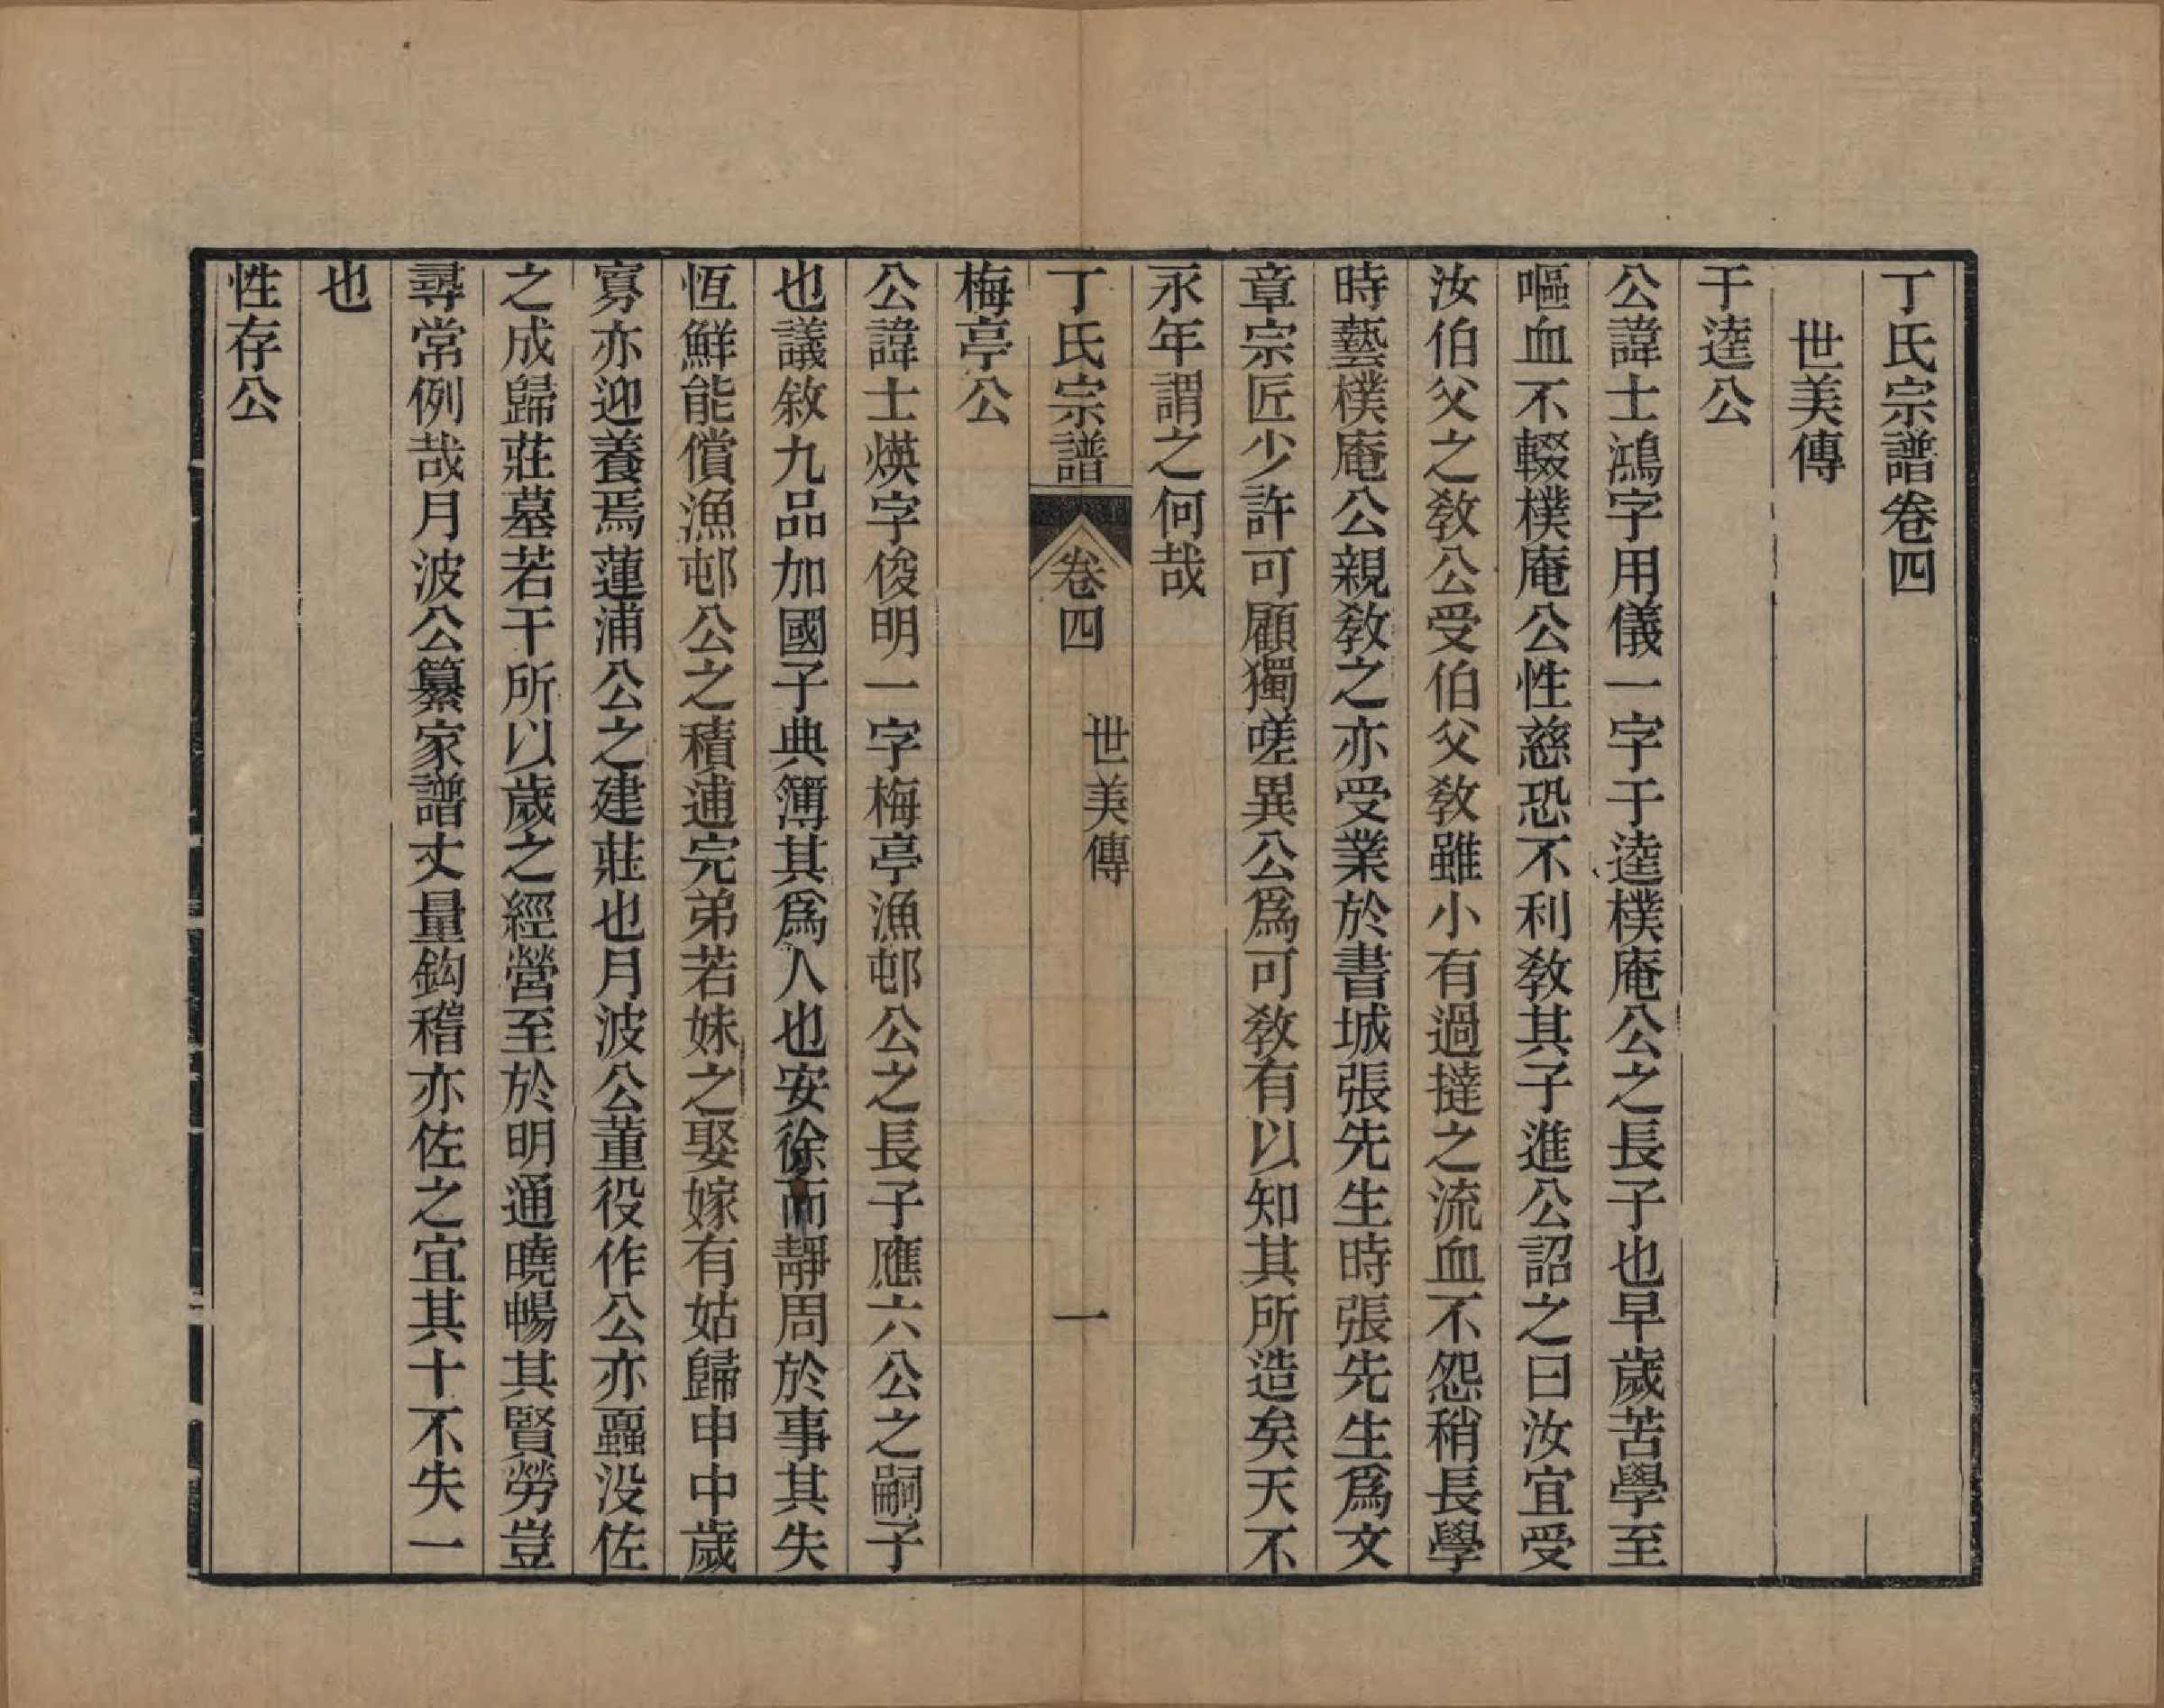 丁氏宗譜卷四
世美傳
干逵公
公諱士鴻字用儀一字于逵樸庵公之長子也早歲苦學至
嘔血不輟樸庵公性慈恐不利教其子進公詔之曰汝宜受
汝伯父之敎公受伯父敎雖小有過撻之流血不怨稍長學
時藝樸庵公親敎之亦受業於書城張先生時張先生爲文
章宗匠少許可顧獨嗟異公爲可敎有以知其所造矣天不
永年謂之何哉
丁氏宗譜 卷四 世美傳 一
梅亭公
公諱士煐字俊明一字梅亭漁邨公之長子應六公之嗣子
也議敘九品加國子典簿其爲人也安徐而靜周於事其失
恆鮮能償漁邨公之積逋完弟若妹之娶嫁有姑歸申中歲
寡亦迎養焉蓮浦公之建莊也月波公董役作公亦蠠没佐
之成歸莊墓若干所以歲之經營至於明通曉暢其賢勞豈
尋常例哉月波公纂家譜丈量鈎稽亦佐之宜其十不失一
也
性存公